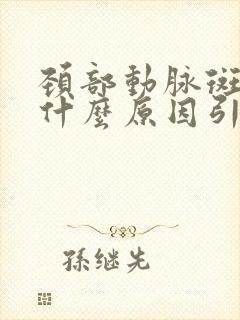 頚部動脉斑
什麼原因引
孫继先